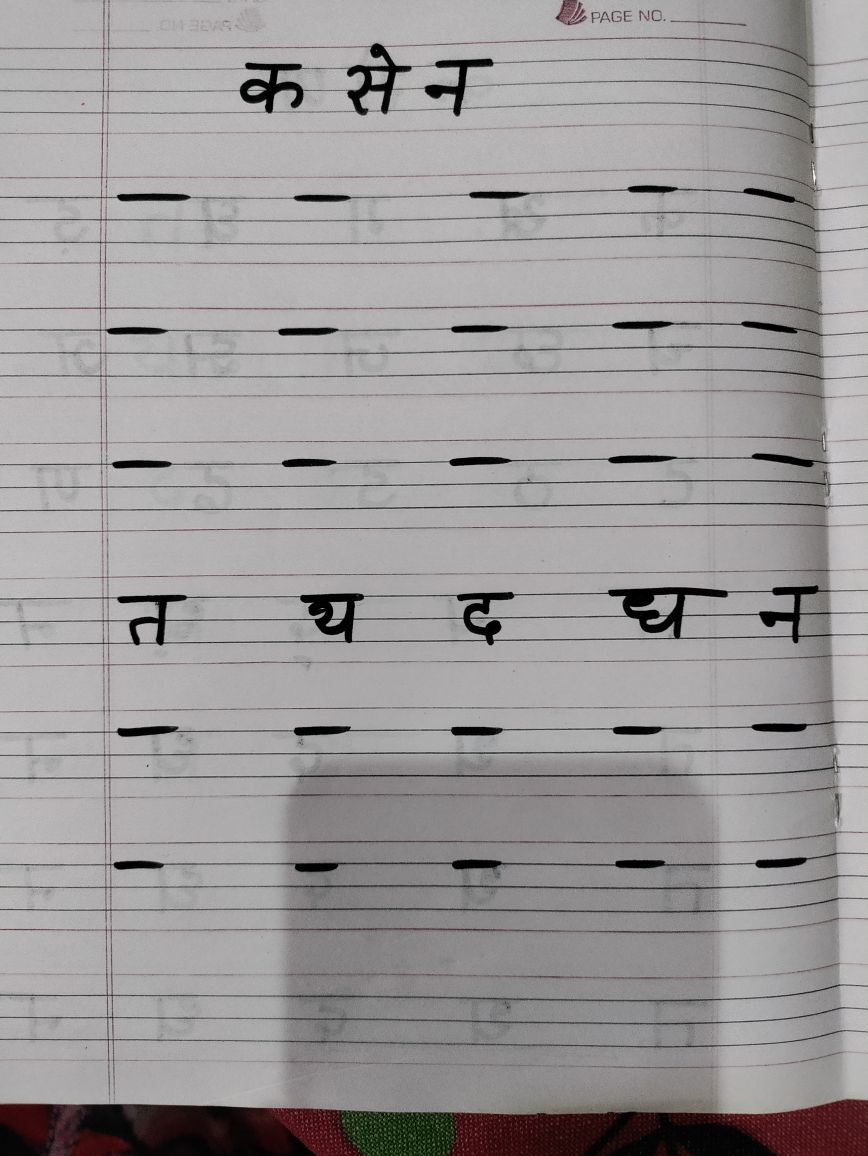 PAGE NO.
क से न
— — — — —
— — — — —
— — — — —
त थ द ध न
— — — — —
— — — — —